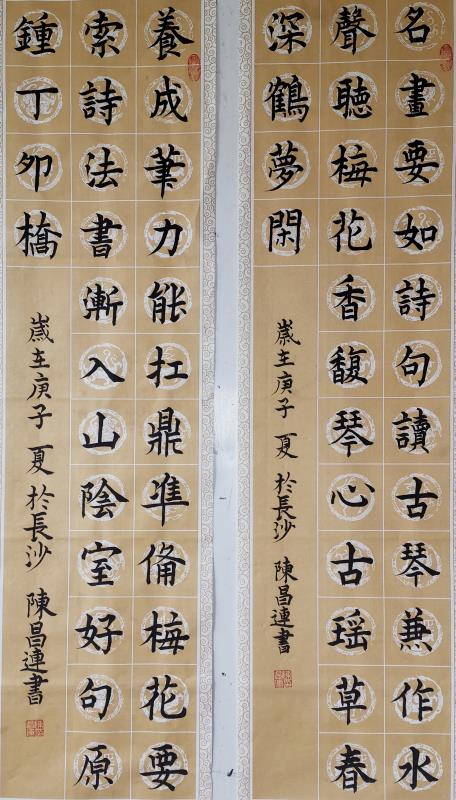 名畫要如詩句讀古琴兼作水
聲聽梅花香馥琴心古瑶草春
深鶴夢閑
歲在庚子夏於長沙 陳昌連書
養成筆力能扛鼎準備梅花要
索詩法書漸入山陰室好句原
鍾丁卯橋
歲在庚子夏於長沙 陳昌連書